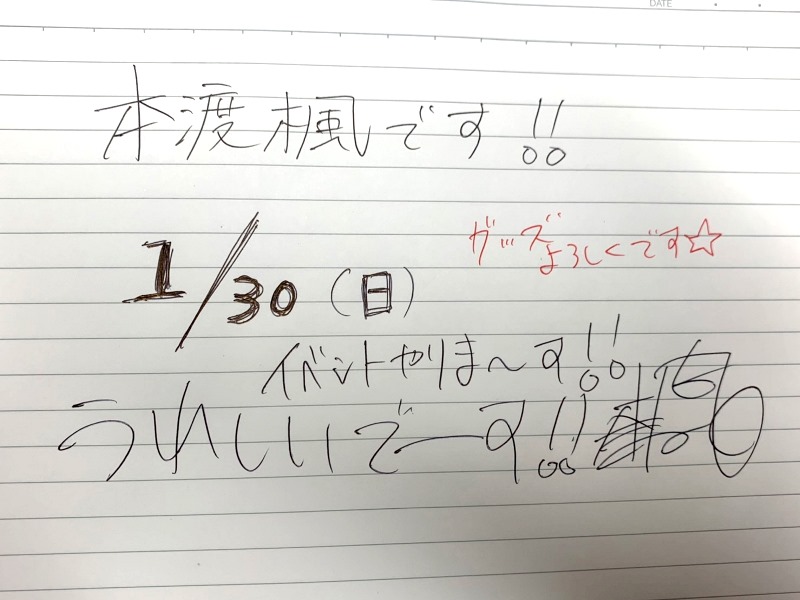 DATE
本渡楓です!!
グッズ
よろしくです☆
1/30(日)
イベントやりま〜す!!
うれしいでーす!!